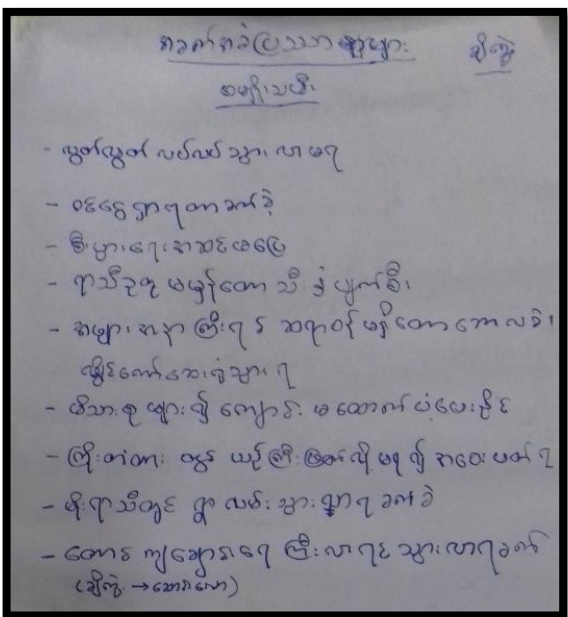 အခက်အခဲပြဿနာများ ချီကွဲ
အမျိုးသမီး
- လွတ်လွတ် လပ်လပ် သွား လာ မရ
- ဝင်ငွေ ရှာ ရတာ ခက်ခဲ
- စီးပွားရေး အဆင်မပြေ
- ရာသီဥတု မမှန်တော သီးနှံပျက်စီး
- အဖျား အနာ ကြီးရင် ဆရာဝန် မရှိတော
လွိုင်ကော်ဆေးရုံသွား ရ
- မိသားစု များ ၍ ကျောင်း မ ထောက်ပံ့ပေးနိုင်
- ကြိုးတံတား တွင် ယဉ်ကြီး ဖြတ်လို့မရ ၍ အဝေး ပတ် ရ
- မိုးရာသီတွင် ရွာ လမ်း သွားလာရ ခက်ခဲ
- တောင်ကျချောင်းရေ ကြီးလာရင် သွားလာရခက်
(ချီကွဲ →)